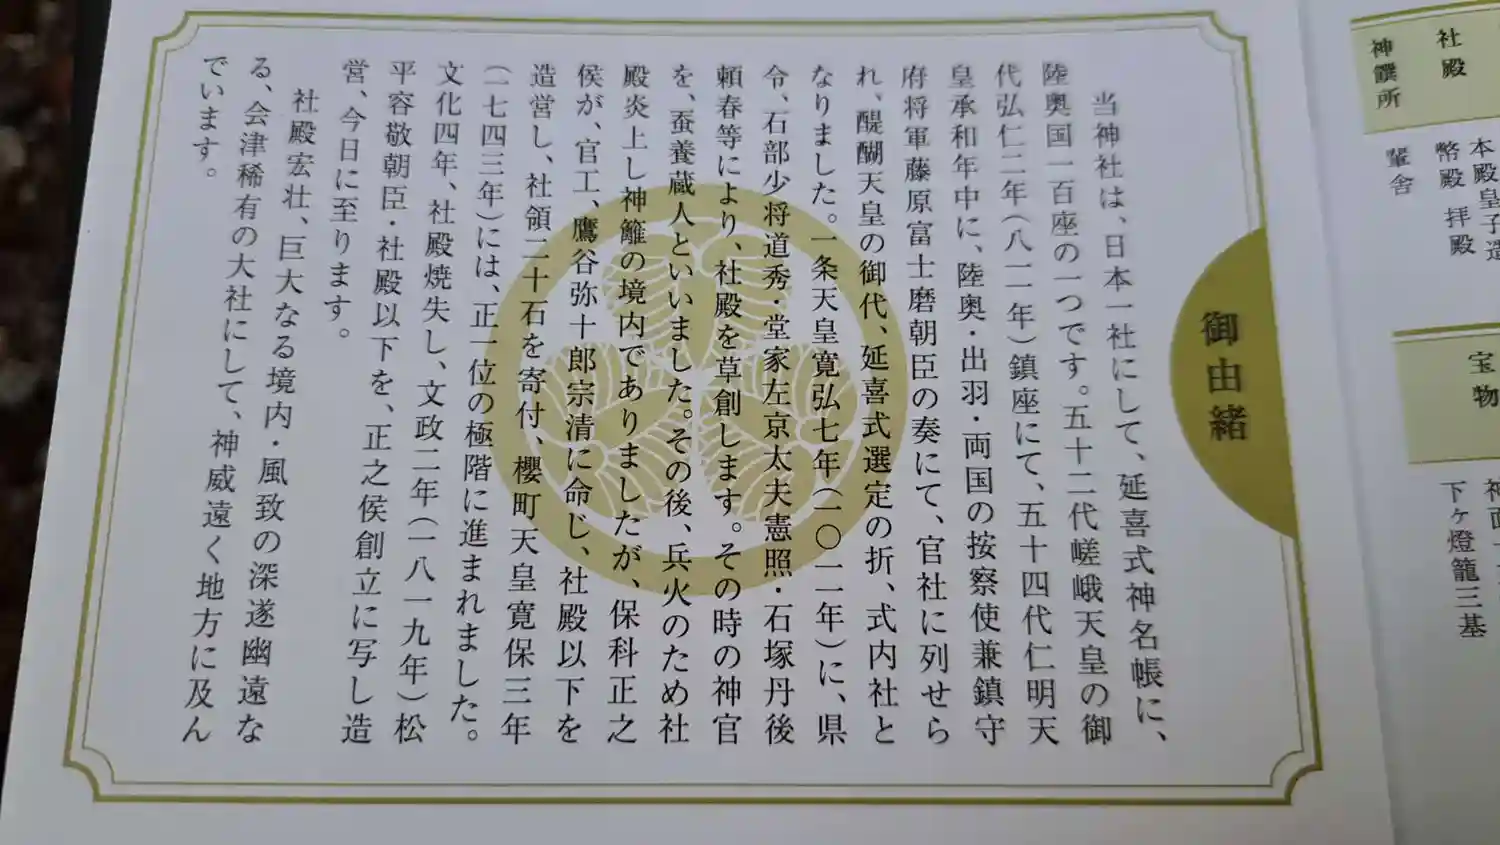 御由緒
当神社は、日本一社にして、延喜式神名帳に、
陸奥国一百座の一つです。五十二代嵯峨天皇の御
代弘仁二年(八一一年)鎮座にて、五十四代仁明天
皇承和年中に、陸奥・出羽・両国の按察使兼鎮守
府将軍藤原富士磨朝臣の奏にて、官社に列せら
れ、醍醐天皇の御代、延喜式選定の折、式内社と
なりました。一条天皇寛弘七年(一〇一一年)に、県
令、石部少将道秀・堂家左京太夫憲照・石塚丹後
頼春等により、社殿を草創します。その時の神官
を、蚕養蔵人といいました。その後、兵火のため社
殿炎上し神籬の境内でありましたが、保科正之
侯が、官工、鷹谷弥十郎宗清に命じ、社殿以下を
造営し、社領二十石を寄付、櫻町天皇寛保三年
(一七四三年)には、正一位の極階に進まれました。
文化四年、社殿焼失し、文政二年(一八一九年)松
平容敬朝臣・社殿以下を、正之侯創立に写し造
営、今日に至ります。
社殿宏壮、巨大なる境内・風致の深遂幽遠な
る、会津稀有の大社にして、神威遠く地方に及ん
でいます。
社殿
神饌所
本殿皇子造
幣殿 拝殿
輦舎
宝物
下ケ燈籠三基